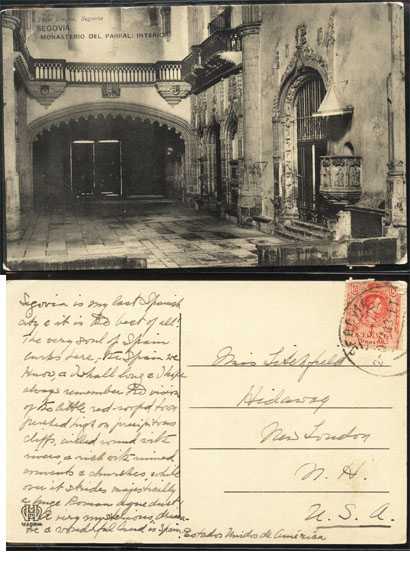 Tipo Segovia
SEGOVIA
MONASTERIO DEL PARRAL: INTERIOR
Segovia is my last Spanish
city & it is the best of all!
The very soul of Spain
lurks here, the Spain we
know, & I shall long & I hope
always remember the vision
of the little red-roofed town
perched high on precipitous
cliffs, walled round with
rivers & rich with ruined
convents & churches, while
over it strides majestically
a huge Roman aqueduct
A very mysterious,
& a wonderful land is Spain.
MADRID
SEGOVIA
Miss Litchfield
Hidaway
New London
N. H.
U. S. A.
Estados Unidos de América